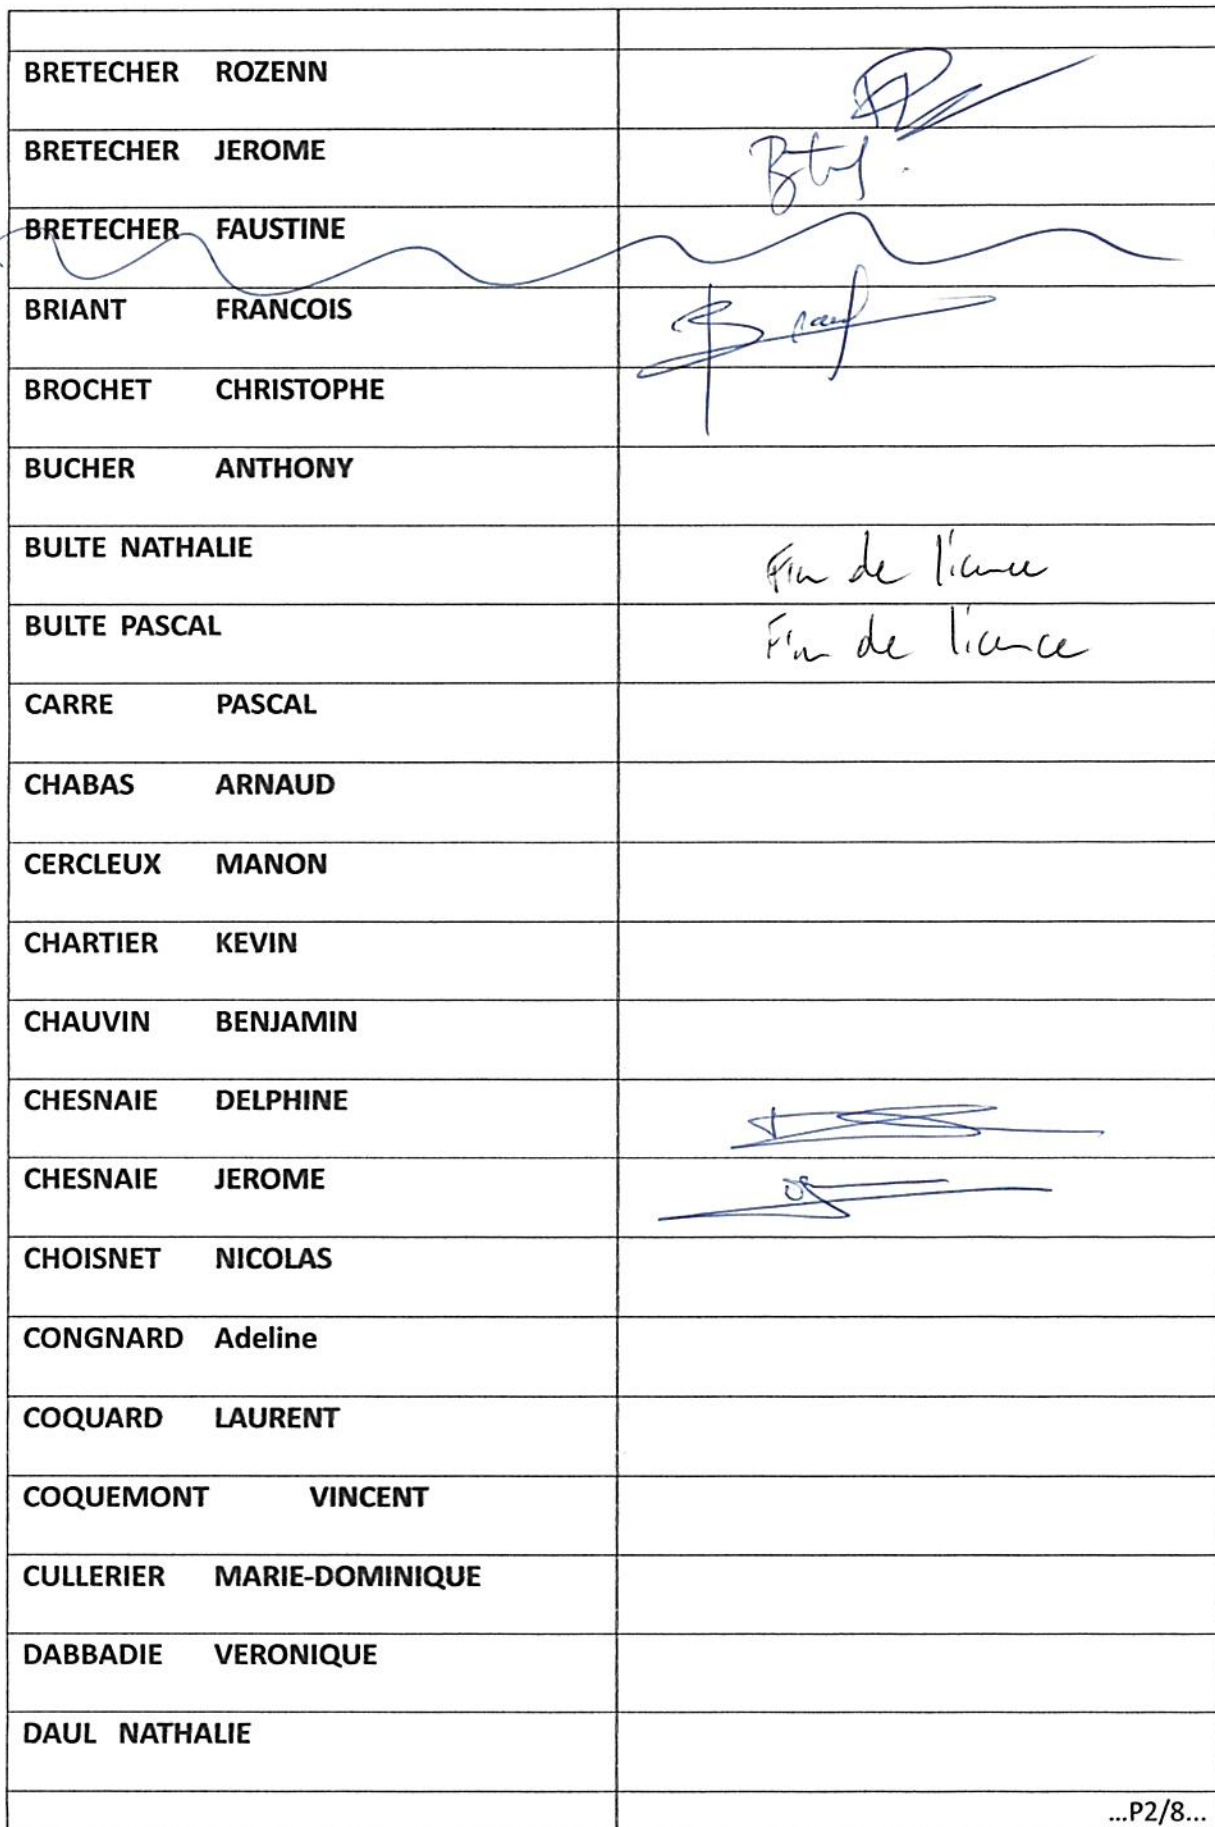 BRETECHER ROZENN
BRETECHER JEROME
BRETECHER FAUSTINE
BRIANT FRANCOIS
BROCHET CHRISTOPHE
BUCHER ANTHONY
BULTE NATHALIE Fin de licence
BULTE PASCAL Fin de licence
CARRE PASCAL
CHABAS ARNAUD
CERCLEUX MANON
CHARTIER KEVIN
CHAUVIN BENJAMIN
CHESNAIE DELPHINE
CHESNAIE JEROME
CHOISNET NICOLAS
CONGNARD Adeline
COQUARD LAURENT
COQUEMONT VINCENT
CULLERIER MARIE-DOMINIQUE
DABBADIE VERONIQUE
DAUL NATHALIE
...P2/8...